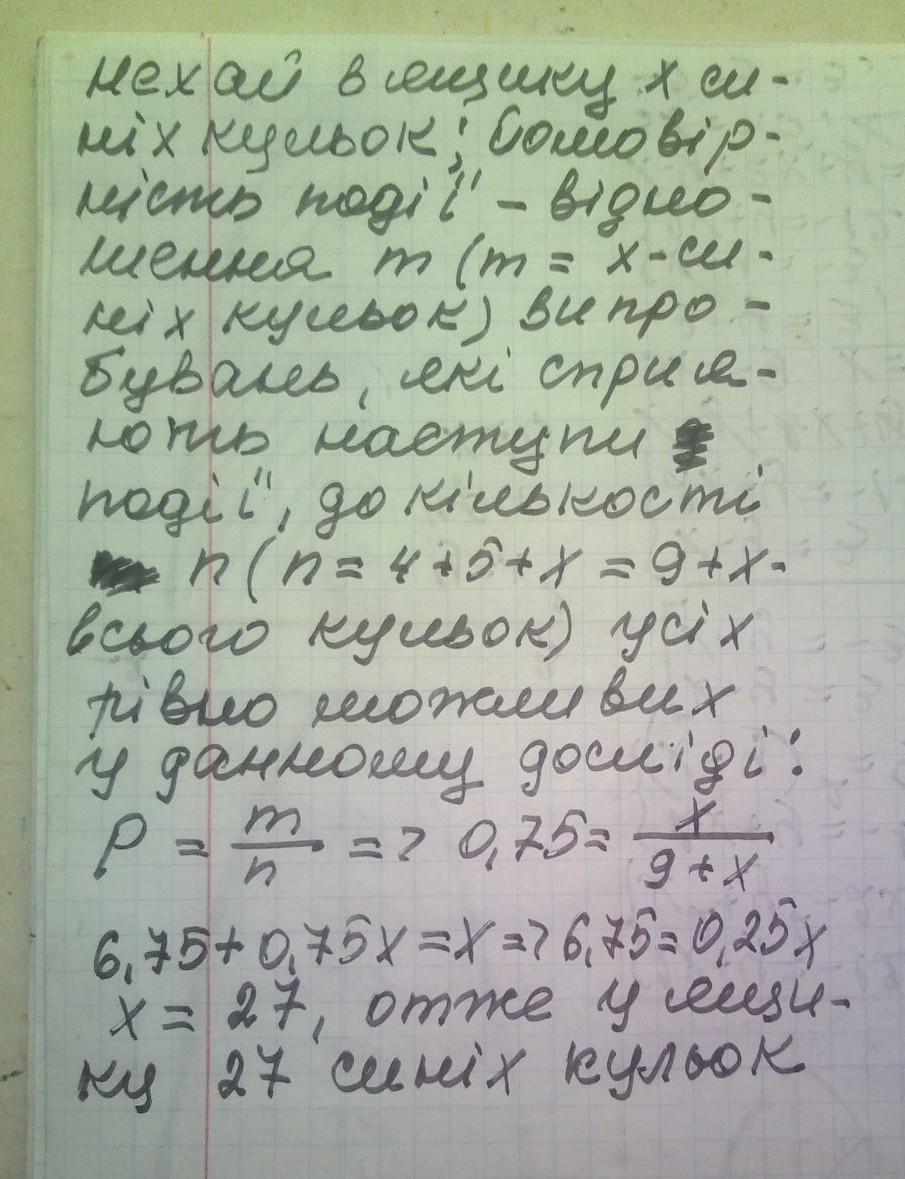 нехай в ящику х си-
ніх кульок; ймовір-
ність події - відно-
шення m (m = x-си-
ніх кульок) випро-
бувань, які сприя-
ють наступи
події, до кількості
n (n = 4+5+x = 9+x-
всього кульок) усіх
рівно можливих
у данному досліді:
P = m/n => 0,75 = x/(9+x)
6,75+0,75x=x=>6,75=0,25x
x = 27, отже у ящи-
ку 27 синіх кульок